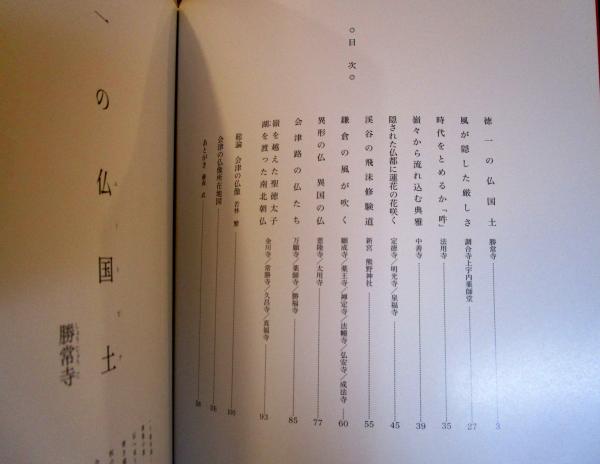 ○目次○
徳一の仏国土 勝常寺 3
風が隠した厳しさ 調合寺上宇内薬師堂 27
時代をとめるか「吽」 法用寺 35
嶺々から流れ込む典雅 中善寺 39
隠された仏都に蓮花の花咲く 定徳寺/明光寺/泉福寺 45
渓谷の飛沫修験道 新宮 熊野神社 55
鎌倉の風が吹く 願成寺/薬王寺/禅定寺/法幢寺/仏安寺/成法寺 60
異形の仏 異国の仏 恵隆寺/大用寺 77
会津路の仏たち 万願寺/薬師寺/勝福寺 85
嶺を越えた聖徳太子
湖を渡った南北朝仏 金川寺/常勝寺/久昌寺/真福寺 93
総論 会津の仏像 若林 繁
会津の仏像所在地図
あとがき
の仏国土
勝常寺